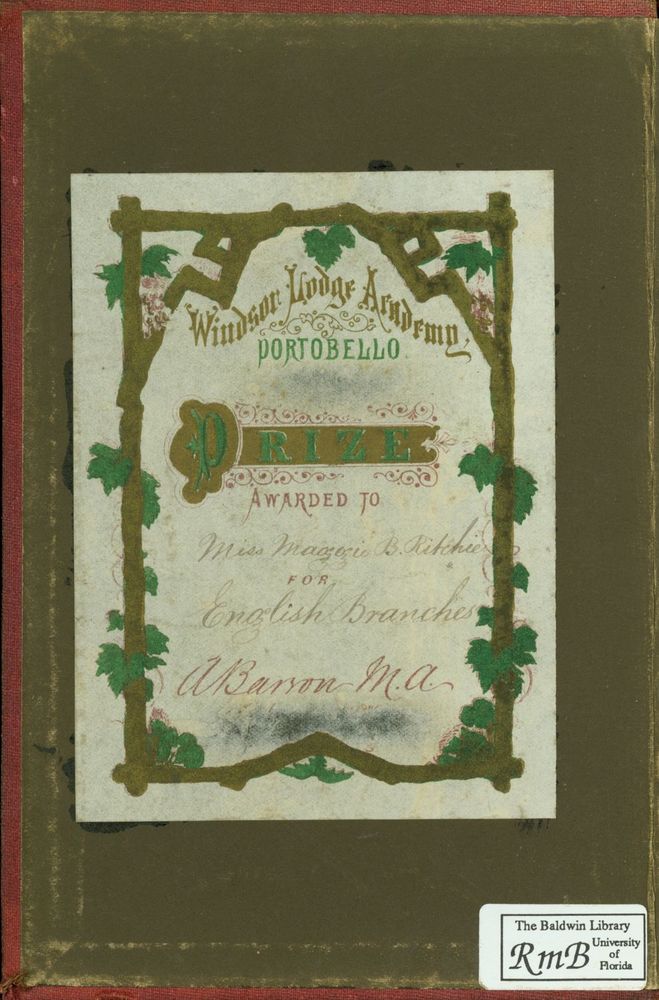 Windsor Lodge Academy,
PORTOBELLO.
PRIZE
AWARDED TO
Miss Maggie B. Ritchie
FOR
English Branches
A Barron M.A.
The Baldwin Library
RmB University
of
Florida